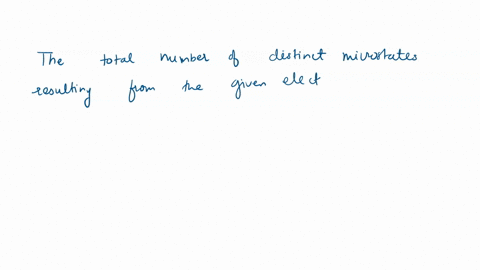 The total number of distinct microstates
resulting from the given elect